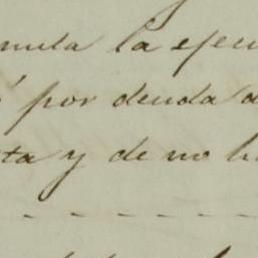 mula la ejecu
por deuda d
ta y de no h